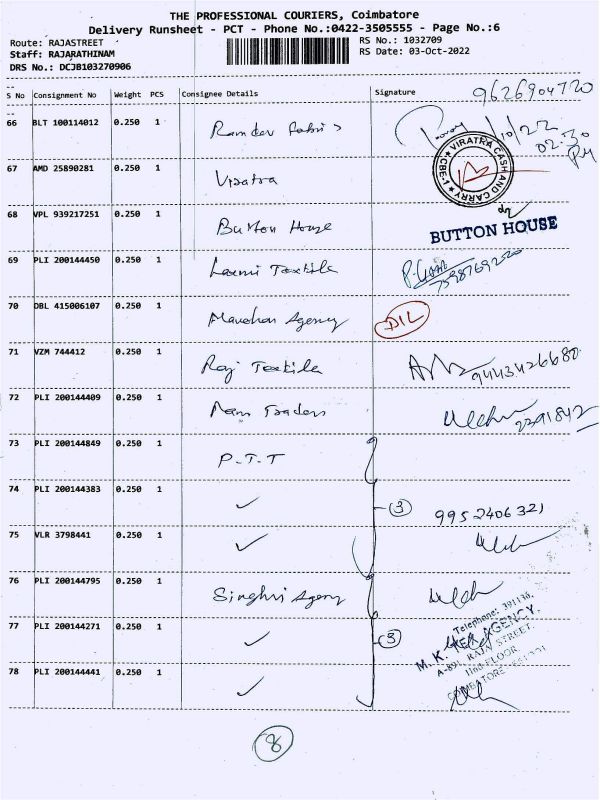 THE PROFESSIONAL COURIERS, Coimbatore
Delivery Runsheet - PCT - Phone No.:0422-3505555 - Page No.:6
Route: RAJASTREET
RS No.: 1032709
Staff: RAJARATHINAM
RS Date: 03-Oct-2022
DRS No.: DCJB103270906
S No Consignment No Weight PCS Consignee Details Signature
9626904720
66 BLT 100114012 0.250 1 Ramdev
10/22
02.30
PM
67 AMD 25890281 0.250 1 Viratra
VIRATRA CASH AND CARRY CBE-1
68 VPL 939217251 0.250 1 Button House
BUTTON HOUSE
69 PLI 200144450 0.250 1 Laxmi Textile
70 DBL 415006107 0.250 1 Agency
DIL
71 VZM 744412 0.250 1 Raj Textile 9443426680
72 PLI 200144409 0.250 1 Ram Traders
73 PLI 200144849 0.250 1 P.T.T
74 PLI 200144383 0.250 1 ✓ 3 9952406321
75 VLR 3798441 0.250 1 ✓
76 PLI 200144795 0.250 1 Singhvi Agency
Telephone: 391136,
77 PLI 200144271 0.250 1 ✓ 3
M. K. AGENCY,
A-891, RAJA STREET,
IInd FLOOR
78 PLI 200144441 0.250 1 ✓
COIMBATORE
8